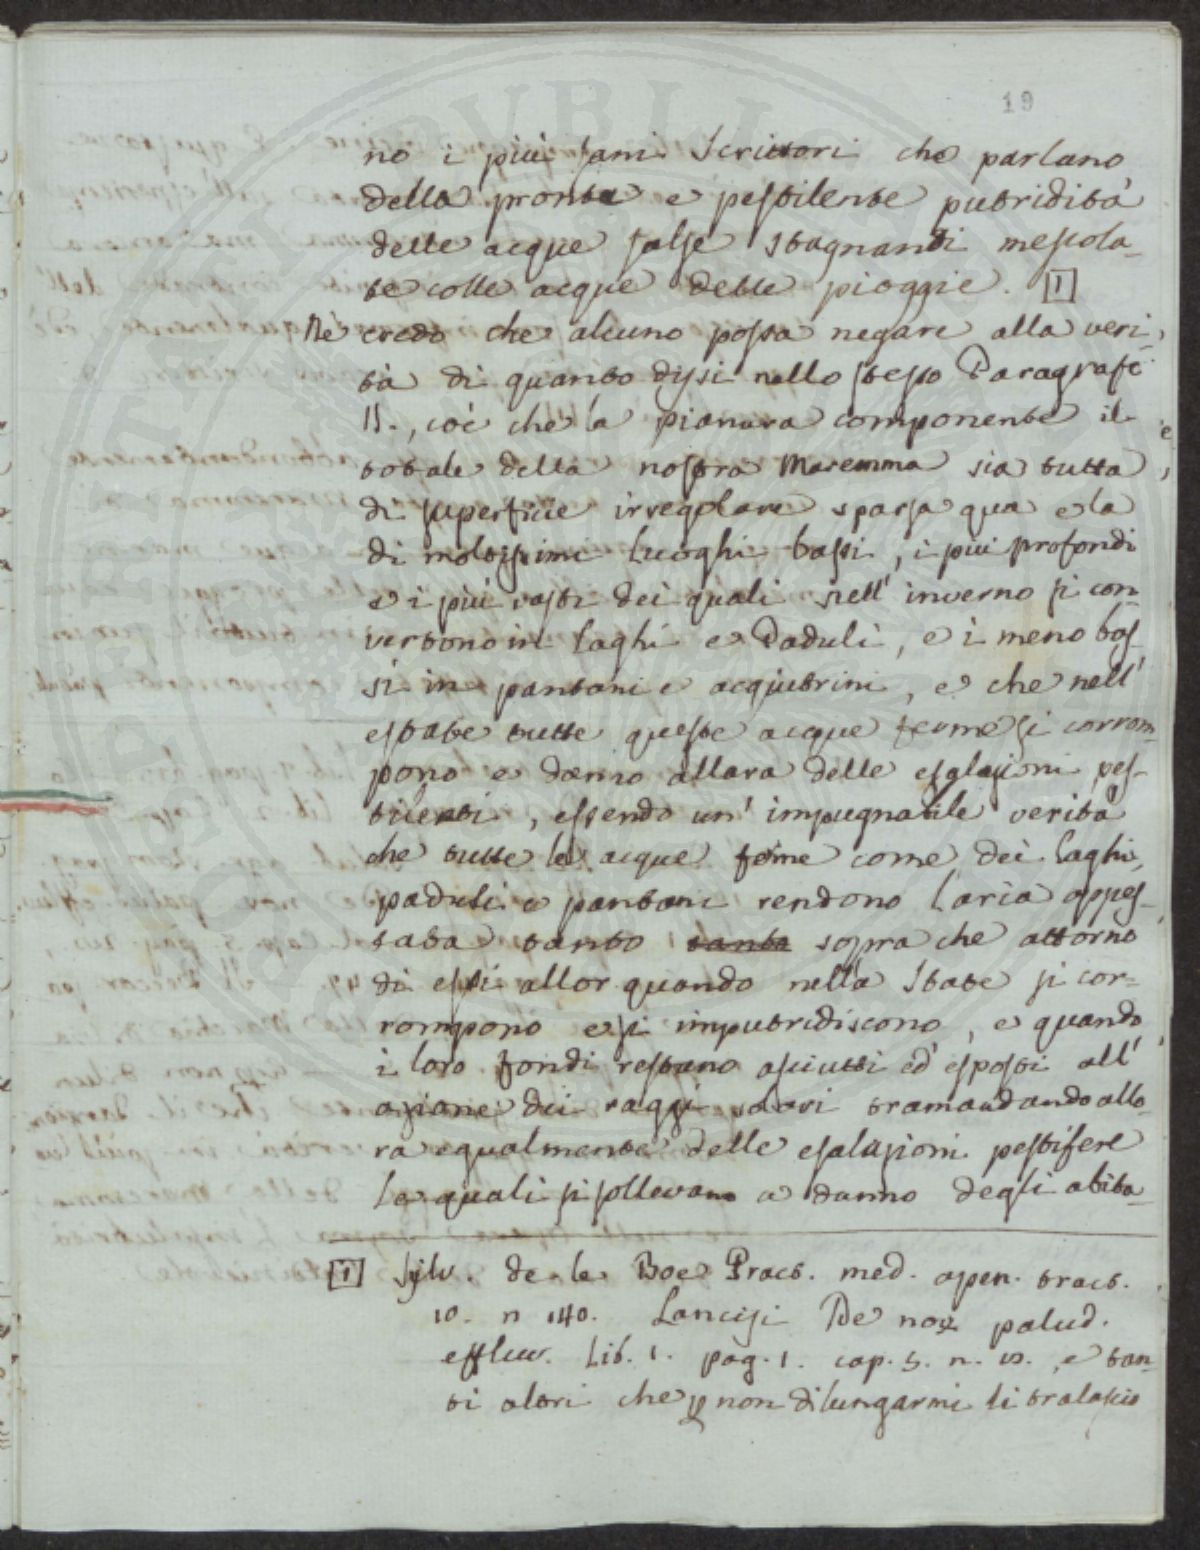 19
no i più sani Scrittori che parlano
della pronta e pestilente putridità
delle acque salse stagnanti mescola-
te colle acque delle pioggie. [1]
Nè credo che alcuno possa negare alla veri-
tà di quanto dissi nello stesso Paragrafo
II., coè che la pianura componente il
totale della nostra Maremma sia tutta
di superficie irregolare sparsa qua e la
di moltissimi Luoghi bassi, i più profondi
e i più vasti dei quali nell' inverno si con-
vertono in Laghi e Paduli, e i meno bas-
si in pantani e acquitrini, e che nell'
estate tutte queste acque ferme si corrom-
pono e danno allara delle esalazioni pes-
tilenti, essendo un' impugnabile verità
che tutte le acque ferme come dei Laghi,
paduli e pantani rendono laria appes-
tata tanto tanta sopra che attorno
di essi allor quando nella State si cor-
rompono e si imputridiscono, e quando
i loro fondi restano asciutti ed esposti all'
azione dei raggi solari tramandando allo-
ra egualmente delle esalazioni pestifere
le quali si sollevano a danno degli abita-
[1] Sylv. de le Boe Pract. med. apen. tract.
10. n 140. Lancisi De nox palud.
effluv. Lib. 1. pag. 1. cap. 5. n. 10., e tan-
ti altri che p non dilungarmi li tralascio